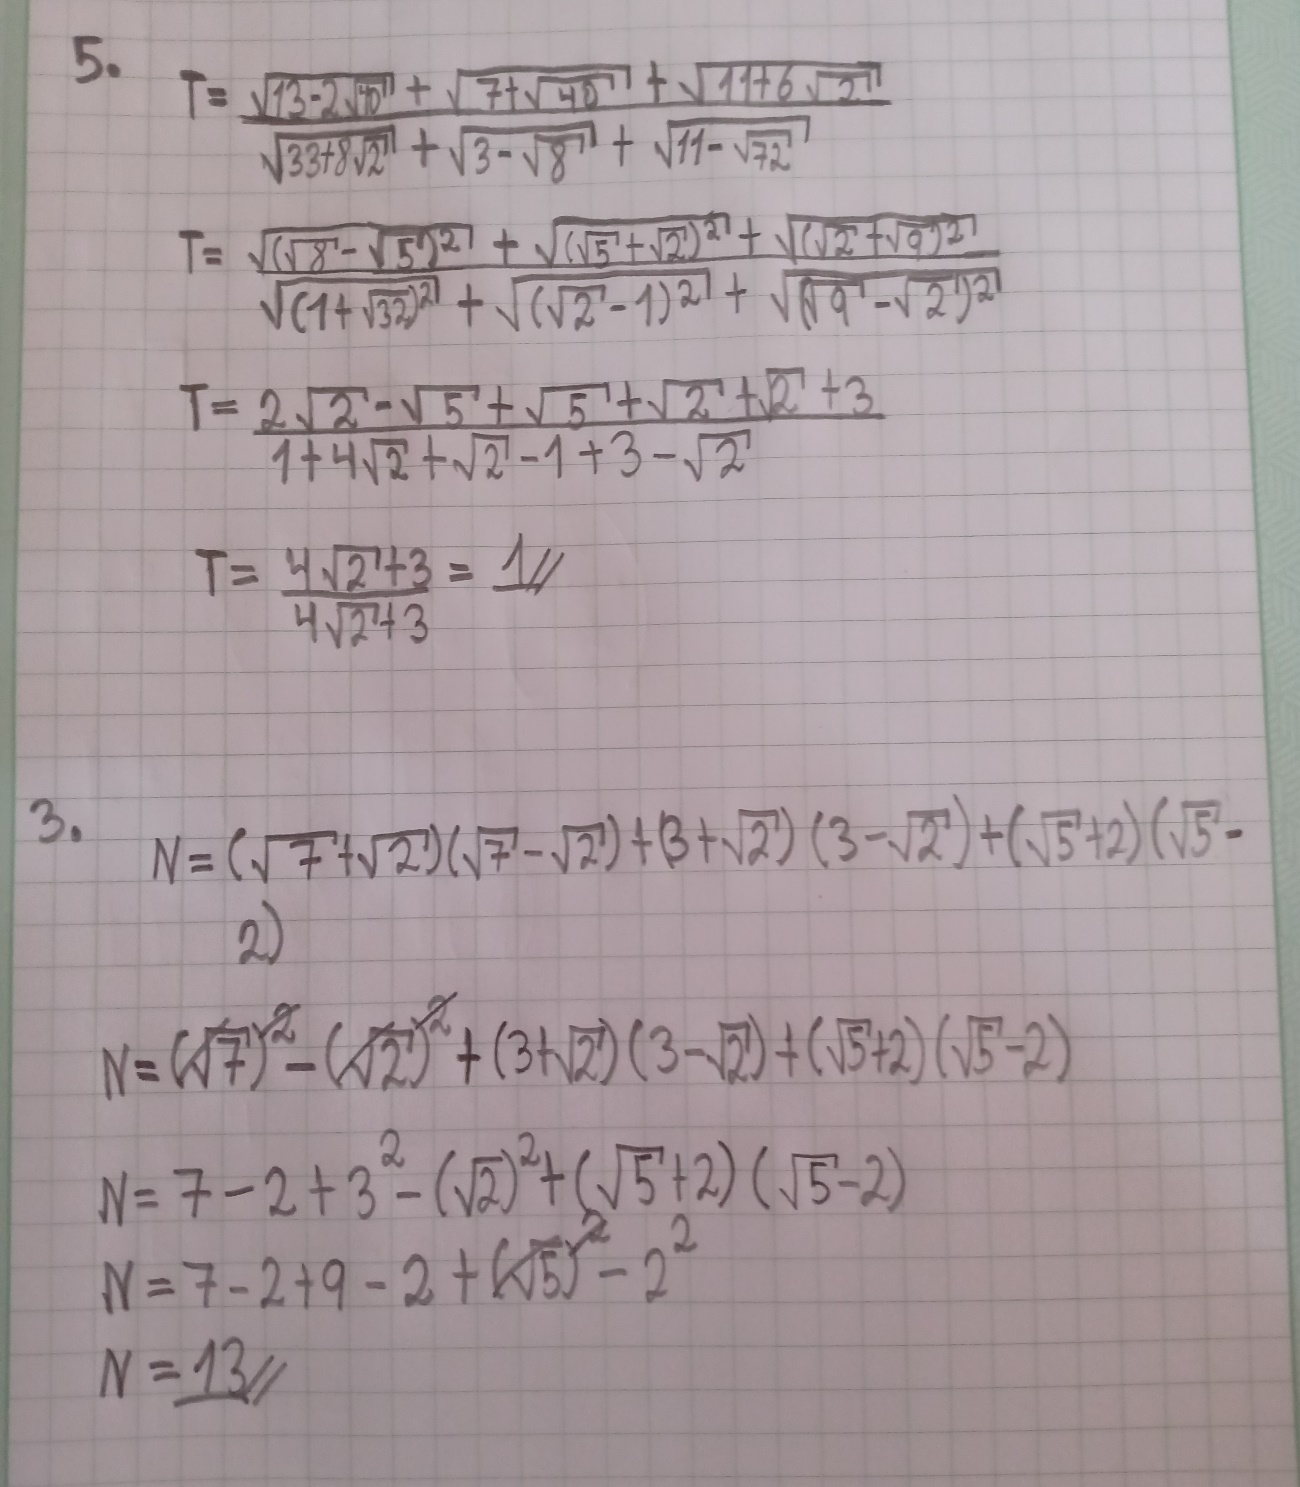 5.
T = (√(13-2√40) + √(7+√40) + √(11+6√2)) / (√(33+8√2) + √(3-√8) + √(11-√72))
T = (√((√8-√5)²) + √((√5+√2)²) + √((√2+√9)²)) / (√((1+√32)²) + √((√2-1)²) + √((√9-√2)²))
T = (2√2-√5+√5+√2+√2+3) / (1+4√2+√2-1+3-√2)
T = (4√2+3) / (4√2+3) = 1//
3.
N = (√7+√2)(√7-√2)+(3+√2)(3-√2)+(√5+2)(√5-
2)
N = (√7)²-(√2)²+(3+√2)(3-√2)+(√5+2)(√5-2)
N = 7-2+3²-(√2)²+(√5+2)(√5-2)
N = 7-2+9-2+(√5)²-2²
N = 13//